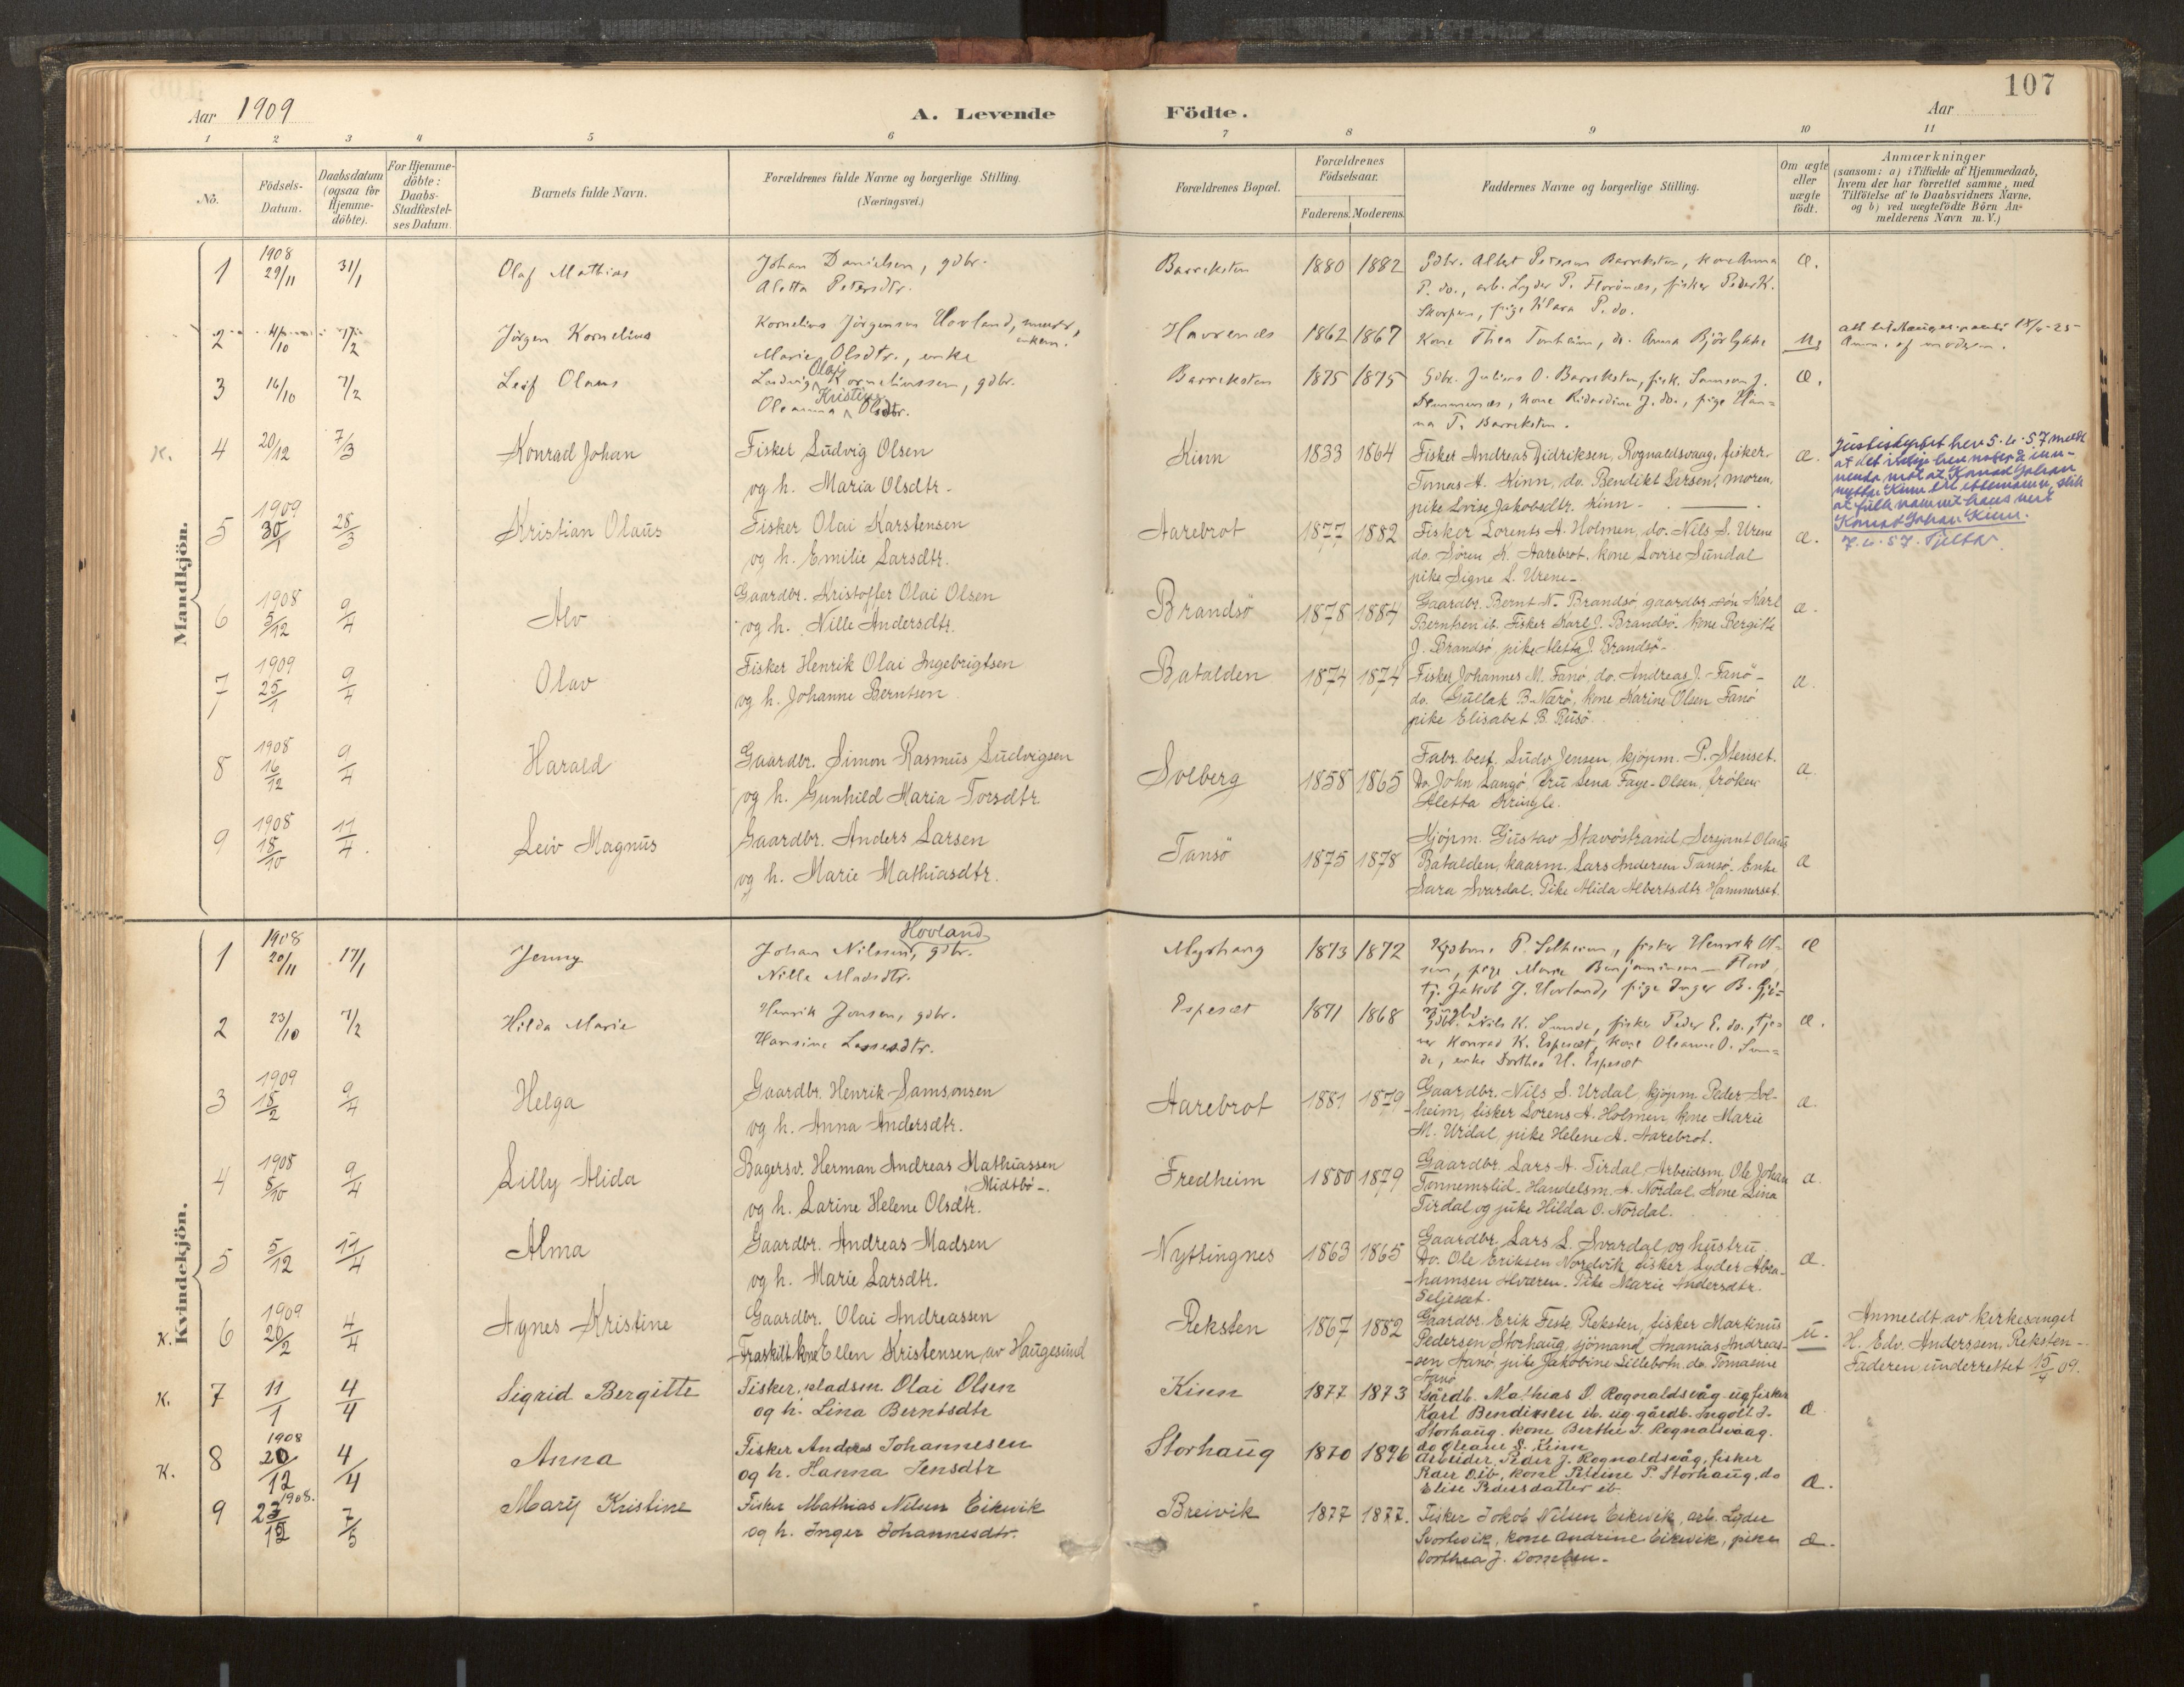 107
Aar 1909
A. Levende Födte.
Aar
1 2 3 4 5 6 7 8 9 10 11
No.
Födsels-
Datum.
Daabsdatum
(ogsaa for
Hjemme-
döbte).
For Hjemme-
döbte:
Daabs-
Stadfæstel-
ses Datum.
Barnets fulde Navn.
Forældrenes fulde Navne og borgerlige Stilling.
(Næringsvei.)
Forældrenes Bopæl.
Forældrenes
Födselsaar.
Faderens. Moderens.
Faddernes Navne og borgerlige Stilling.
Om ægte
eller
uægte
födt.
Anmærkninger
(saasom: a) i Tilfælde af Hjemmedaab,
hvem der har forrettet samme, med
Tilföielse af to Daabsvidners Navne,
og b) ved uægtefödte Börn An-
melderens Navn m. V.)
Mandkjön.
1 1908 29/11 31/1 Olaf Mathias
Johan Danielsen, gdbr.
Aletta Petersdtr.
Barreksten 1880 1882
Gdbr. Albert Petersen Barreksten, kone Anna
P. do., arb. Lyder P. Florönæs, fisker Peder K.
Skorpen, pige Klara P. do.
æ.
2 4/10 7/2 Jörgen Kornelius
Kornelius Jörgensen Hovland,
enkem.
Marie Olsdtr., enke
Havrenæs 1862 1867
Kone Thea Tonheim, do. Anna Björlykke
u.
Anm. af moderen.
3 16/10 7/2 Leif Olaus
Ludvig Olai Korneliussen, gdbr.
Oleanna Kristine Olsdtr.
Barreksten 1875 1875
Gdbr. Julius O. Barreksten, fisk. Samson J.
kone Rikardine J. do., pige Han-
na T. Barreksten.
æ.
K. 4 20/12 7/3 Konrad Johan
Fisker Ludvig Olsen
og h. Maria Olsdtr.
Kinn 1833 1864
Fisker Andreas Didriksen, Rognaldsvaag, fisker
Tomas A. Kinn, do. Bendikt Larsen, moren,
pike Lovise Jakobsdtr. Kinn.
æ.
Justisdepartet hev 5.6.57 meldt
at det ikkje hev noko å inn-
venda mot at Konrad Johan
nyttar Kinn til ettenamn, slik
at fulle namnet hans vert
Konrad Johan Kinn.
7.6.57.
5 1909 30/1 28/3 Kristian Olaus
Fisker Olai Karstensen
og h. Emilie Larsdtr.
Aarebrot 1877 1882
Fisker Lorents A. Holmen, do. Nils S. Urene
do. Sören K. Aarebrot, kone Lovise Sundal
pike Signe L. Urene.
æ.
6 1908 5/12 9/4 Alv
Gaardbr. Kristoffer Olai Olsen
og h. Nille Andersdtr.
Brandsö 1878 1884
Gaardbr. Bernt N. Brandsö, gaardbr. sön Karl
Berntsen ib. Fisker Karl J. Brandsö. kone Bergitte
J. Brandsö, pike Aletta J. Brandsö.
æ.
7 1909 25/1 9/4 Olav
Fisker Henrik Olai Ingebrigtsen
og h. Johanne Berntsen
Batalden 1874 1874
Fisker Johannes M. Fanö, do. Andreas J. Fanö
do. Gullak B. Nærö, kone Karine Olsen Fanö
pike Elisabet B. Rusö.
æ
8 1908 16/12 9/4 Harald
Gaardbr. Simon Rasmus Ludvigsen
og h. Gunhild Maria Torsdtr.
Solberg 1858 1865
Fabr. best. Ludv Jensen, kjöpm. P. Stenset.
Do. John Langö, fru Lena Faye-Olsen, fröken
Aletta Kringle.
æ.
9 1908 18/10 11/4 Leiv Magnus
Gaardbr. Anders Larsen
og h. Marie Mathiasdtr.
Tansö 1875 1878
Kjöpm. Gustav Stavöstrand, Sersjant Olaus
Batalden, kaarm. Lars Andersen Tansö. Enke
Sara Svardal. Pike Alida Albertsdtr. Hammerset.
æ
Kvindekjön.
1 1908 20/11 17/1 Jenny
Johan Nilssen Hovland, gdbr.
Nille Madsdtr.
Myrhaug 1873 1872
P. Solheim, fisker Henrik Ol-
sen, pige Marie Benjaminsen
tj. Jakob J. Hovland, pige Inger B.
æ
2 23/10 7/2 Hilda Marie
Henrik Jonsen, gdbr.
Hansine Lassesdtr.
Espeset 1871 1868
Gdbr. Nils K. Sunde, fisker Peder E. do., tje-
ner Konrad K. Espeset, kone Oleanne O. Sun-
de, enke Dorthea H. Espeset
æ.
3 1909 18/2 9/4 Helga
Gaardbr. Henrik Samsonsen
og h. Anna Andersdtr.
Aarebrot 1881 1879
Gaardbr. Nils S. Urdal, kjöpm. Peder Sol-
heim, fisker Lorens A. Holmen, kone Marie
M. Urdal, pike Helene A. Aarebrot.
æ.
4 1908 8/10 9/4 Lilly Alida
Bagersv. Herman Andreas Mathiassen
Midtbö
og h. Larine Helene Olsdtr.
Fredheim 1880 1879
Gaardbr. Lars A. Tirdal, Arbeidsm. Ole Johan
Tonnemslid. Handelsm. A. Nordal. Kone Lina
Tirdal og pike Hilda O. Nordal.
æ.
5 5/12 11/4 Alma
Gaardbr. Andreas Madsen
og h. Marie Larsdtr.
Nyttingnes 1863 1865
Gaardbr. Lars L. Svardal og hustru.
Do. Ole Eriksen Nordvik, fisker Lyder Abra-
hamsen Hværen. Pike Marie Andersdtr.
Seljeset.
æ.
K. 6 1909 20/2 4/4 Agnes Kristine
Gaardbr. Olai Andreassen
Fraskilt kone Ellen Kristensen av Haugesund
Reksten 1867 1882
Gaardbr. Erik Feste Reksten, fisker Martinus
Pedersen Storhaug, sjömand Ananias Andreas-
sen Aanö, pike Jakobine Lillebotn, do. Tomasine
u.
Anmeldt av kirkesanger
H. Edv. Anderssen, Reksten.
Faderen underrettet 15/4 09.
K. 7 11/1 4/4 Sigrid Bergitte
Fisker, pladsm. Olai Olsen
og h. Lina Berntsdtr
Kinn 1877 1873
Gårdb. Mathias O. Rognaldsvåg. ug fisker
Karl Bendiksen ib. ug. gårdb. Ingolf J.
Storhaug. kone Berthe J. Rognaldsvaag.
do Oleane S. Kinn
æ
K. 8 1908 20/12 4/4 Anna
Fisker Anders Johannesen
og h. Hanna Jensdtr
Storhaug 1870 1876
Arbeider, Peder J. Rognaldsvåg, fisker
Peder O. ib, kone Petline P. Storhaug, do
Elise Pedersdatter ib.
æ.
9 1908. 23/12 7/5 Mary Kristine
Fisker Mathias Nilsen Eikevik
og h. Inger Johannesdtr.
Breivik 1877 1877.
Fisker Jakob Nilsen Eikevik, arb. Lyder
Svortevik, kone Andrine Eikevik, piken
Dorthea J. Domben.
æ.